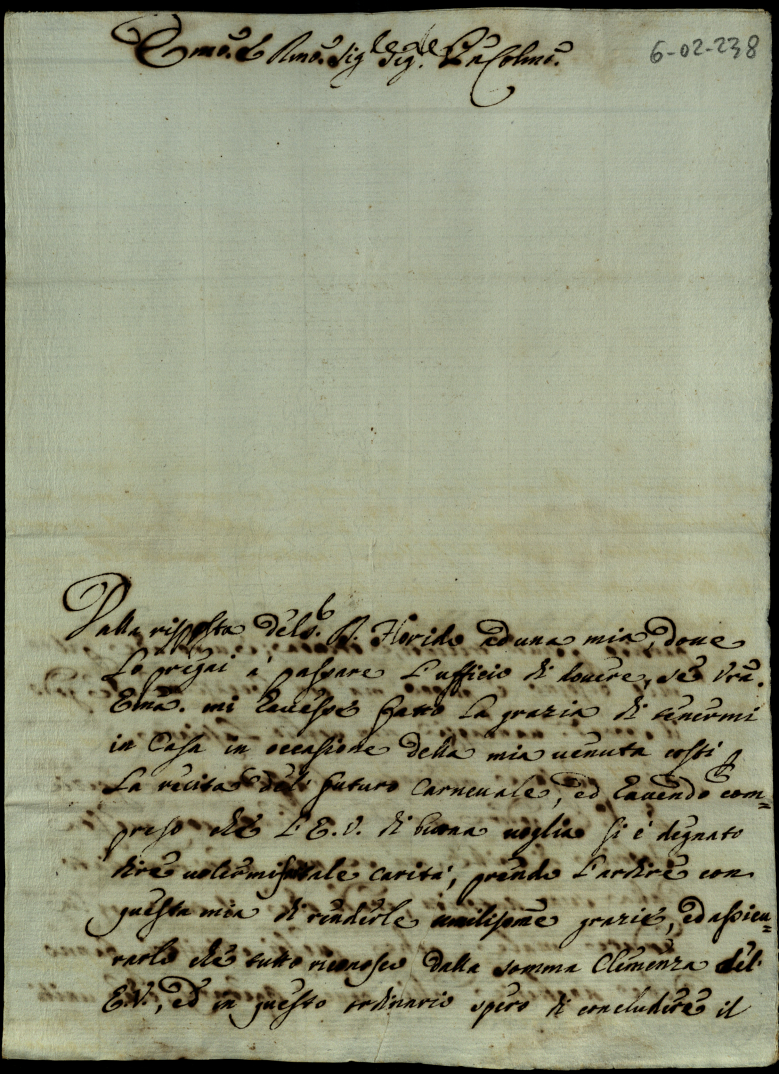 Emo. e Rmo. Sigre Sigre Pn Colmo.
6-02-238
Dalla risposta del S. D. Florido ad una mia, dove
Lo pregai a' passare l'ufficio di dovere, se Vra.
Ema. mi havesse fatto la grazia di tenermi
in Casa in occasione della mia venuta costi p
La recita del futuro Carnevale, ed havendo com=
preso che L'E.V. di buona voglia si è degnato
dire volermi tale carità, prendo l'ardire con
questa mia di renderle umilissme grazie, ed assicu=
rarlo che tutto riconosco dalla somma Clemenza dell'
E.V., ed in questo ordinario spero di concludere il